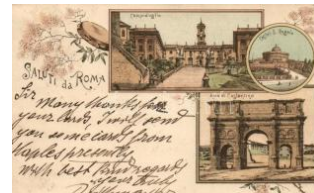 Campidoglio
Castel S. Angelo
SALUTI da ROMA
Arco di Costantino
Sir
Many thanks for
your cards, I will send
you some cards from
Naples presently
with best kind regards
yours truly